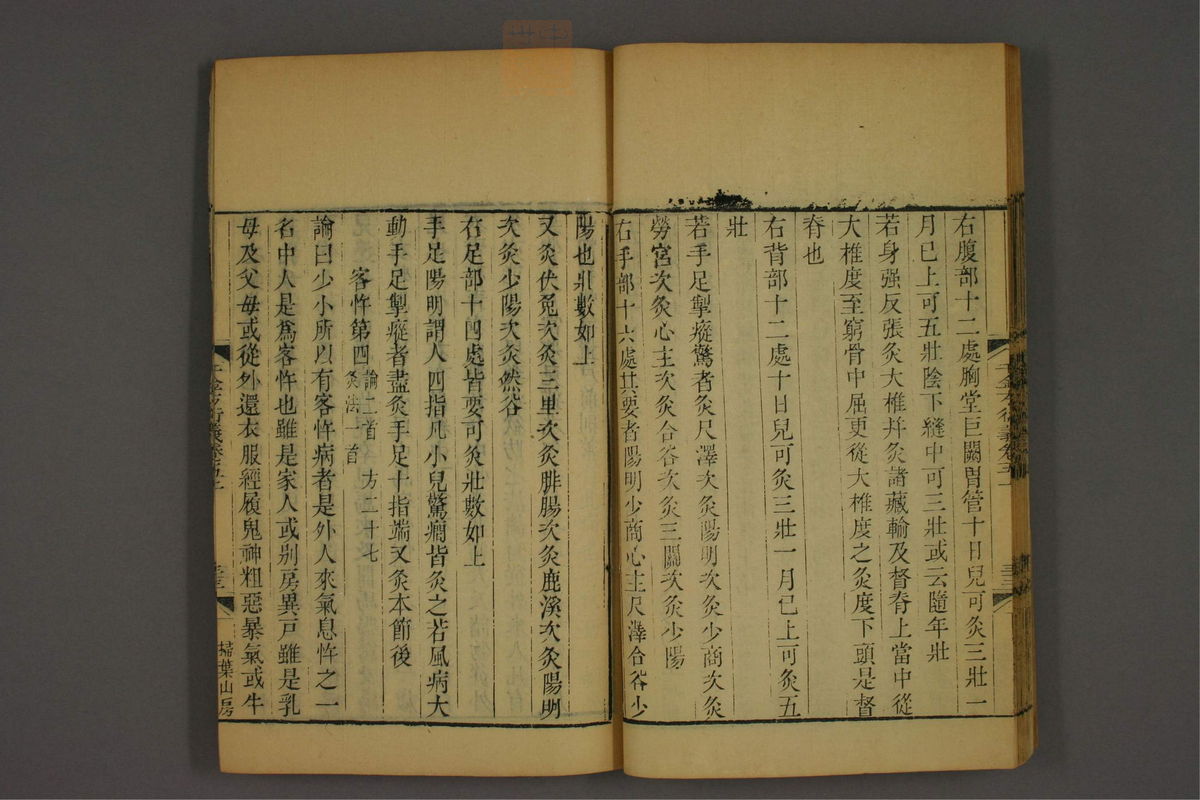 右腹部十二處胸堂巨闕胃管十日兒可灸三壯一
月已上可五壯陰下縫中可三壯或云隨年壯
若身强反張灸大椎并灸諸藏輸及督脊上當中從
大椎度至窮骨中屈更從大椎度之灸度下頭是督
脊也
右背部十二處十日兒可灸三壯一月已上可灸五
壯
若手足掣瘲驚者灸尺澤次灸陽明次灸少商次灸
勞宮次灸心主次灸合谷次灸三關次灸少陽
右手部十六處其要者陽明少商心主尺澤合谷少
陽也壯數如上
又灸伏兔次灸三里次灸腓腸次灸鹿溪次灸陽明
次灸少陽次灸然谷
右足部十四處皆要可灸壯數如上
手足陽明謂人四指凡小兒驚癇皆灸之若風病大
動手足掣瘲者盡灸手足十指端又灸本節後
客忤第四 論二首 方二十七 灸法一首
論曰少小所以有客忤病者是外人來氣息忤之一
名中人是爲客忤也雖是家人或别房異戸雖是乳
母及父母或從外還衣服經履鬼神粗惡暴氣或牛
千金方衍義卷五上
掃葉山房